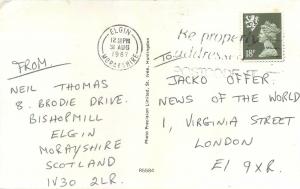 ELGIN
12 30 PM
31 AUG
1987
MORAYSHIRE
Be properly
addressed
18P
FROM
NEIL THOMAS
8. BRODIE DRIVE.
BISHOPMILL
ELGIN
MORAYSHIRE
SCOTLAND
IV30 2LR.
Photo Precision Limited, St. Ives, Huntingdon
R5584
TO
JACKO OFFER
NEWS OF THE WORLD
1, VIRGINIA STREET
LONDON
E1 9XR.